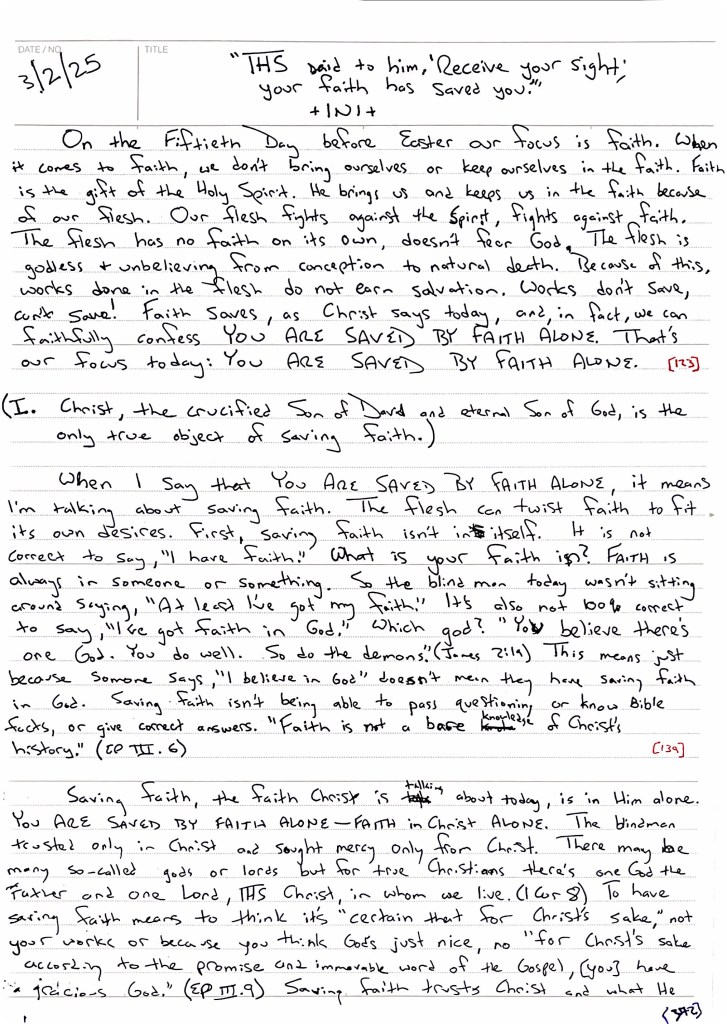 DATE / NO. TITLE
3/2/25
"IHS said to him, 'Receive your sight;
your faith has saved you.'"
+ INI +
On the Fiftieth Day before Easter our focus is faith. When
it comes to faith, we don't bring ourselves or keep ourselves in the faith. Faith
is the gift of the Holy Spirit. He brings us and keeps us in the faith because
of our flesh. Our flesh fights against the Spirit, fights against faith.
The flesh has no faith on its own, doesn't fear God. The flesh is
godless + unbelieving from conception to natural death. Because of this,
works done in the flesh do not earn salvation. Works don't save,
can't save! Faith saves, as Christ says today, and, in fact, we can
faithfully confess YOU ARE SAVED BY FAITH ALONE. That's
our focus today: YOU ARE SAVED BY FAITH ALONE. [123]
(I. Christ, the crucified Son of David and eternal Son of God, is the
only true object of saving faith.)
When I say that YOU ARE SAVED BY FAITH ALONE, it means
I'm talking about saving faith. The flesh can twist faith to fit
its own desires. First, saving faith isn't in itself. It is not
correct to say, "I have faith." What is your faith in? FAITH IS
always in someone or something. So the blind man today wasn't sitting
around saying, "At least I've got my faith." It's also not 100% correct
to say, "I've got faith in God." Which god? "You believe there's
one God. You do well. So do the demons." (James 2:19) This means just
because someone says, "I believe in God" doesn't mean they have saving faith
in God. Saving faith isn't being able to pass questioning or know Bible
facts, or give correct answers. "Faith is not a bare knowledge of Christ's
history." (EP III. 6) [139]
Saving faith, the faith Christ is talking about today, is in Him alone.
YOU ARE SAVED BY FAITH ALONE—FAITH in Christ ALONE. The blindman
trusted only in Christ and sought mercy only from Christ. There may be
many so-called gods or lords but for true Christians there's one God the
Father and one Lord, IHS Christ, in whom we live. (1 Cor 8) To have
saving faith means to think it's "certain that for Christ's sake," not
your works or because you think God's just nice, no "for Christ's sake
according to the promise and immovable word of the Gospel, [you] have
a gracious God." (EP III. 9) Saving faith trusts Christ and what He